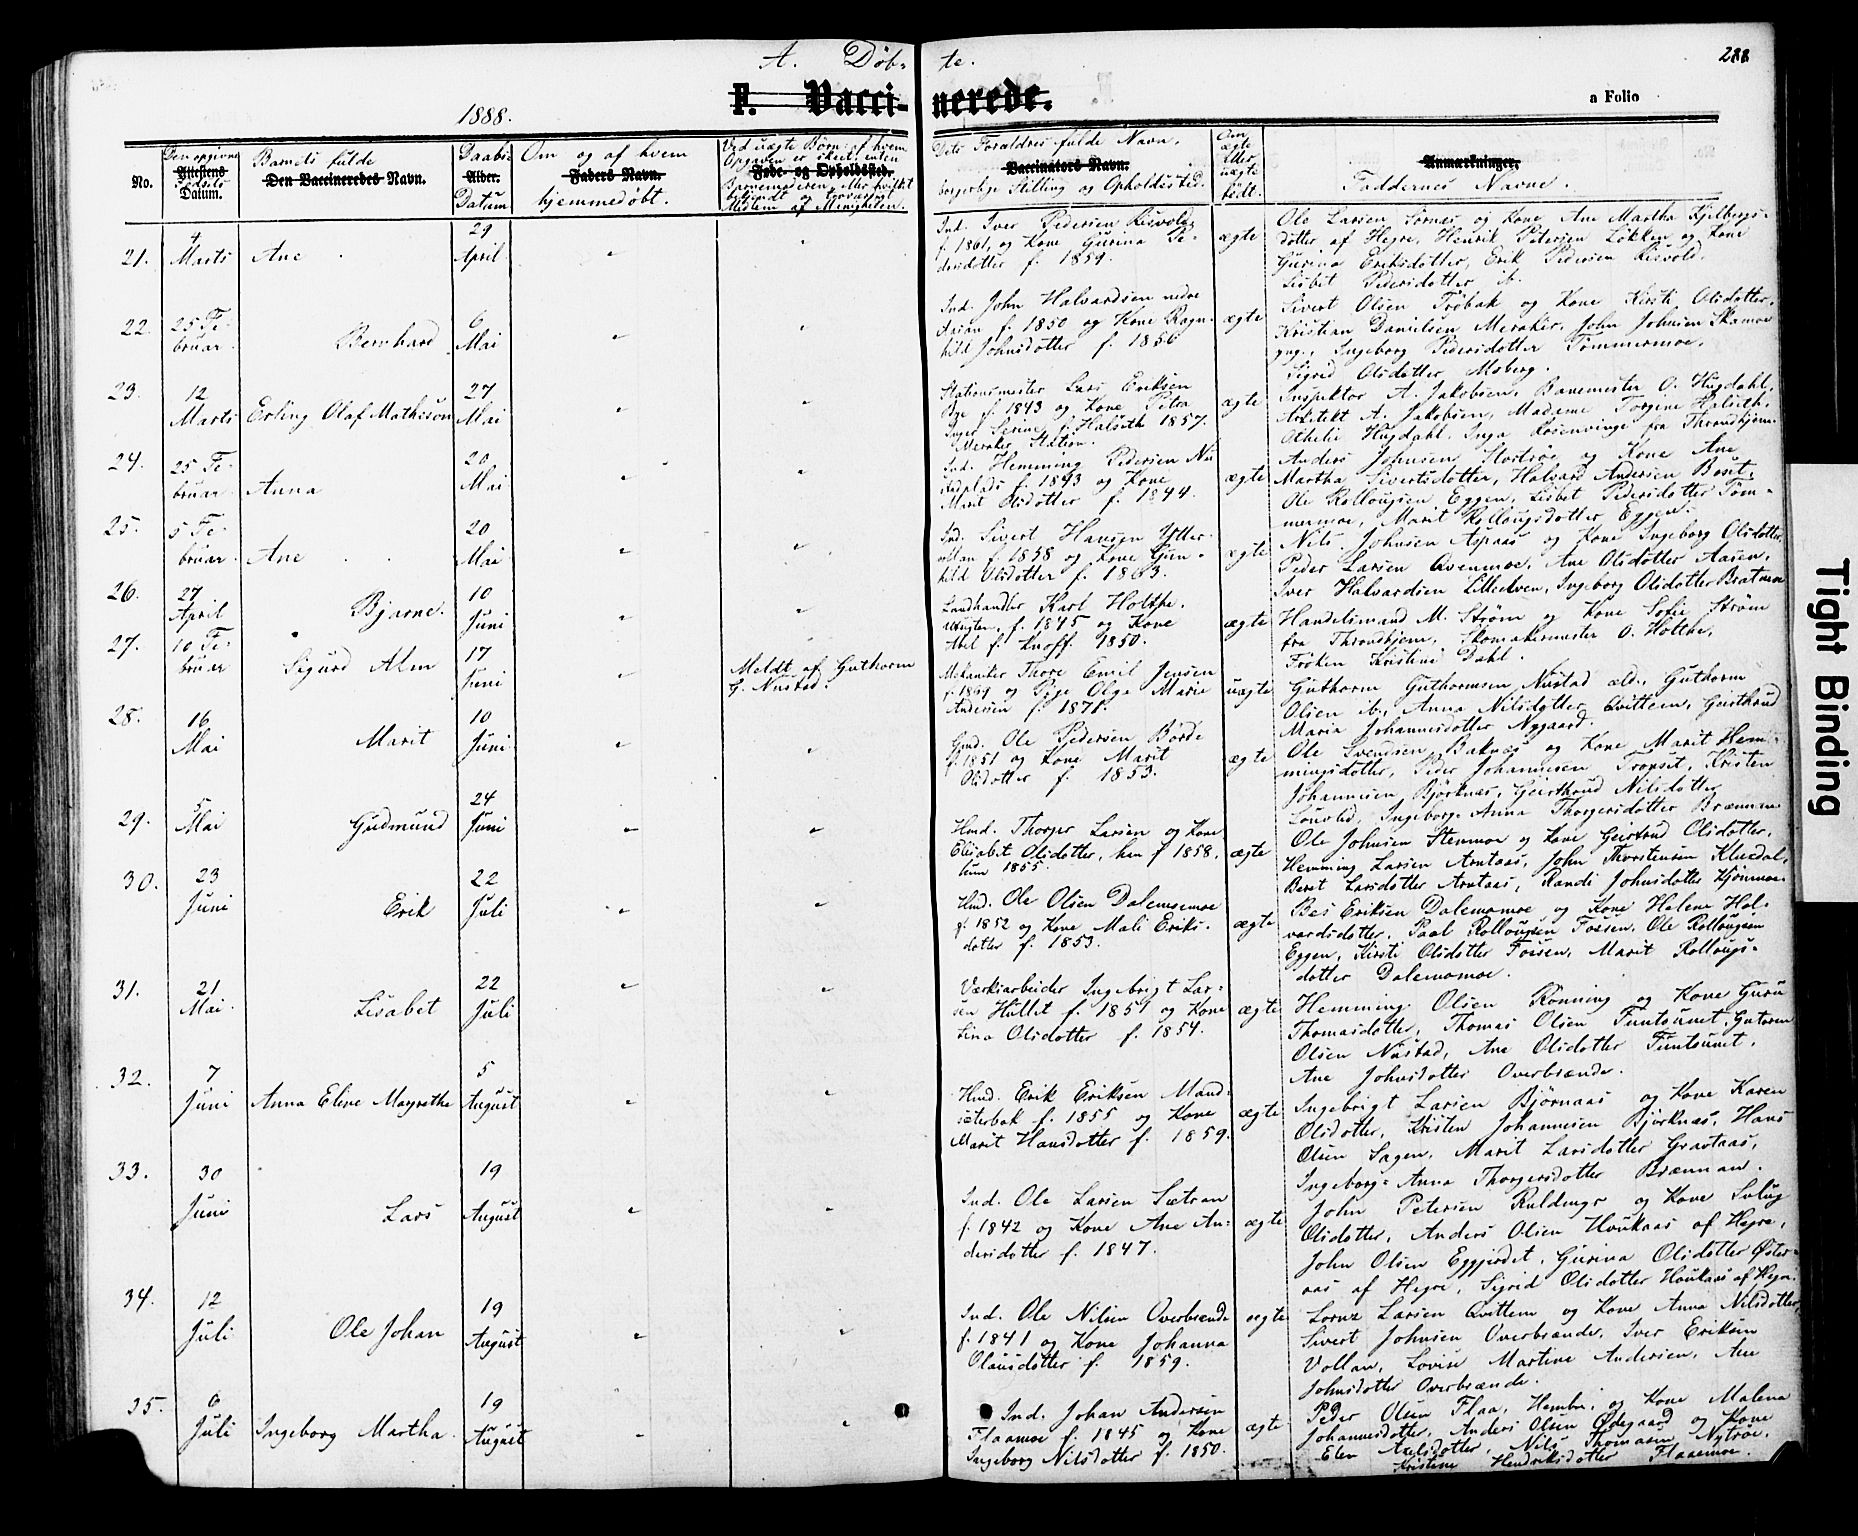 A. Døb- te.
288
1888.
F. Vacci- nerede.
a Folio
No.
Den opgivne
Attestens
Fødsels
Datum.
Barnets fulde
Den Vaccineredes Navn.
Daabs-
Alder.
Datum
Om og af hvem
Faders Navn.
hjemmedøbt.
Ved uægte Børn: af hvem
Opgaven er skeet, enten
Føde- og Opholdssted.
Barnemoderen, eller hvilket
bekjendt og troværdigt
Medlem af Menigheden.
Dets Forældres fulde Navn,
Vaccinators Navn.
borgerlige Stilling og Opholdssted.
Om
ægte
eller
uægte
født.
Anmærkninger.
Faddernes Navne.
21.
4
Marts
Ane
29
April
Ind. Iver Pedersen Risvold
f. 1861, og Kone Gurina Pe-
dersdotter f. 1859.
ægte
Ole Larsen Sørnæs og Kone Ane Martha Kjelbergs-
dotter af Hegre, Henrik Petersen Løkken og Kone
Gurina Eriksdotter, Erik Pedersen Risvold,
Lisbet Pedersdotter ib.
22.
25 Fe-
bruar.
Bernhard
6
Mai
Ind. John Halvardsen nedre
f. 1850 og Kone Ragn-
hild Johnsdotter f. 1856
ægte
Sivert Olsen Frøbak og Kone Kirsti Olsdotter,
Kristian Danielsen Meraker, John Johnsen Skamoe
gug., Ingeborg Pedersdotter Tømmermoe,
Sigrid Olsdotter Moberg.
23.
12
Marts
Erling Olaf Mathison
27
Mai
Stationsmester Lars Eriksen
Bye f. 1843 og Kone Petra
Inger Serine f. Halseth 1857.
Meraker Station.
ægte
Inspektør A. Jakobsen, Banemester O. Hugdahl,
Arkitekt A. Jakobsen, Madame Torgine Halseth,
Othelie Hugdahl. Inga Rosenvinge fra Throndhjem.
24.
25 Fe-
bruar.
Anna
20
Mai
Ind. Hemming Pedersen Nu
stadplads f. 1843 og Kone
Marit Olsdotter f. 1844.
ægte
Anders Johnsen Stortrøe og Kone Ane
Martha Sivertsdotter, Halvard Andersen Beset,
Ole Rollougsen Eggen, Lisbet Pedersdotter Tøm-
mermoe, Marit Rollougsdotter Eggen.
25.
5 Fe-
bruar.
Ane
20
Mai
Ind. Sivert Hansen Ytter-
f. 1858 og Kone Gun-
hild Olsdotter f. 1863.
ægte
Nils Johnsen Aspaas og Kone Ingeborg Olsdotter,
Peder Larsen Qvenmoe, Ane Olsdotter Aasen,
Iver Halvardsen Lilleelven, Ingeborg Olsdotter Bratmoe
26.
27
April
Bjarne.
10
Juni
Landhandler Karl Holthe,
f. 1845 og Kone
Abel f. Knoff. 1850.
ægte
Handelsmand M. Strøm og Kone Sofie Strøm
fra Throndhjem, Skomakermester O. Holthe,
Frøken Kristine Dahl.
27.
10 Fe-
bruar
Sigurd Alm
17
Juni
Meldt af Guthorm
G. Nustad.
Mekaniker Thore Emil Jensen
f. 1864 og Pige Olga Marie
Andersen f. 1871.
uægte
Guthorm Guthormsen Nustad æld., Guthorm
Olsen ib., Anna Nilsdotter Qvittem, Geisthrud
Maria Johannesdotter Nygaard.
28.
16
Mai
Marit
10
Juni
Gmd. Ole Pedersen Borde
f. 1851 og Kone Marit
Olsdotter f. 1853.
ægte
Ole Svendsen Baknæs og Kone Marit Hem-
mingsdotter, Peder Johannesen Tronset, Kristen
Johannesen Bjørknæs, Geisthrud Nilsdotter
Ingeborg-Anna Thorgersdotter Brænman
29.
5
Mai
Gudmund
24
Juni
Hmd. Thorger Larsen og Kone
Elisabet Olsdotter, han f 1858,
hun 1855.
ægte
Ole Johnsen Stenmoe og Kone Geirtrud Olsdotter,
Hemming Larsen Arntaas, John Thorstensen Kluxdal,
Beret Larsdotter Arntaas, Randi Johnsdotter Kjønmoe.
30.
23
Juni
Erik
22
Juli
Hmd. Ole Olsen Dalemsemoe
f. 1852 og Kone Mali Eriks-
dotter f. 1853.
ægte
Bes Eriksen Dalemomoe og Kone Helene Hal-
vardsdotter, Paal Rollougsen Fossen, Ole Rollougsen
Eggen, Kirsti Olsdotter Fossen, Marit Rollougs-
dotter Dalemomoe.
31.
21
Mai.
Lisabet
22
Juli
Værksarbeider Ingebrigt Lar-
sen Hullet f. 1851 og Kone
Lina Olsdotter f. 1854.
ægte
Hemming Olsen Rønning og Kone Guru
Thomasdotter, Thomas Olsen Funtsunet, Gutorm
Olsen Nustad, Ane Olsdotter Funtsunet,
Ane Johnsdotter Overbrænde.
32.
7
Juni
Anna Eline Magrethe
5
August
Hmd. Erik Eriksen Mand-
sæterbak f. 1855 og Kone
Marit Hansdotter f. 1859.
ægte
Ingebrigt Larsen Bjørnaas og Kone Karen
Olsdotter, Kristen Johannesen Bjørknæs, Hans
Olsen Sagen, Marit Larsdotter Gravtaas,
Ingeborg-Anna Thorgersdotter Brænman.
33.
30
Juni
Lars
19
August
Ind. Ole Larsen Sætran
f. 1842 og Kone Ane An-
dersdotter f. 1847.
ægte
John Petersen Ruldnge og Kone Solug
Olsdotter, Anders Olsen Houkaas af Hegre,
John Olsen Eggjerdet, Gurina Olsdotter Øster-
aas af Hegre, Sigrid Olsdotter Houkaas af Hegre
34.
12
Juli
Ole Johan
19
August
Ind. Ole Nilsen Overbrænde
f. 1841 og Kone Johanna
Olausdotter f. 1859.
ægte
Lornz Larsen Qvittem og Kone Anna Nilsdotter,
Sivert Johnsen Overbrænde, Iver Eriksen
Vollan, Lovise Martine Andersen, Ane
Johnsdotter Overbrænde.
35.
6
Juli
Ingeborg Martha.
19
August
Ind. Johan Andersen
Flaamoe f. 1845 og Kone
Ingeborg Nilsdotter f. 1850.
ægte
Peder Olsen Flaa, Hembre, og Kone Malena
Johannesdotter, Anders Olsen Ødegaard og Kone
Elen Axelsdotter, Nils Thomasen Nytrøe,
Kristine Hendriksdotter Flaaemoe.
Tight Binding